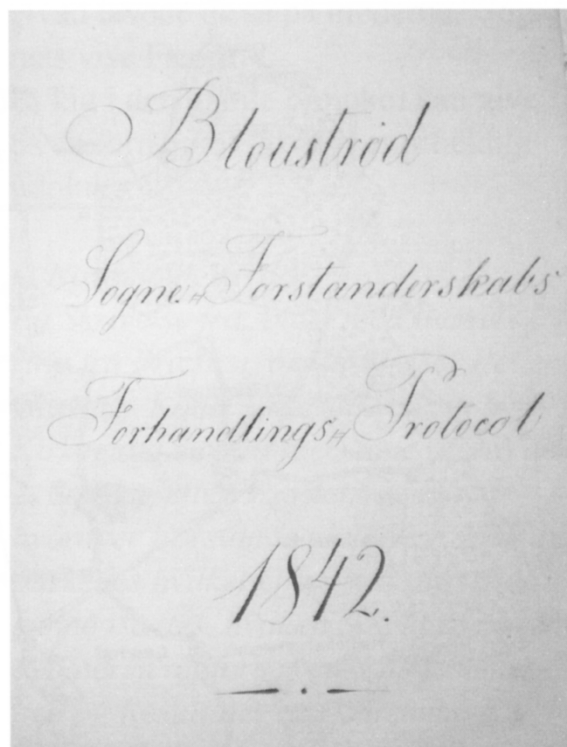 Bloustrød
Sogne=Forstanderskabs
Forhandlings=Protocol
1842.